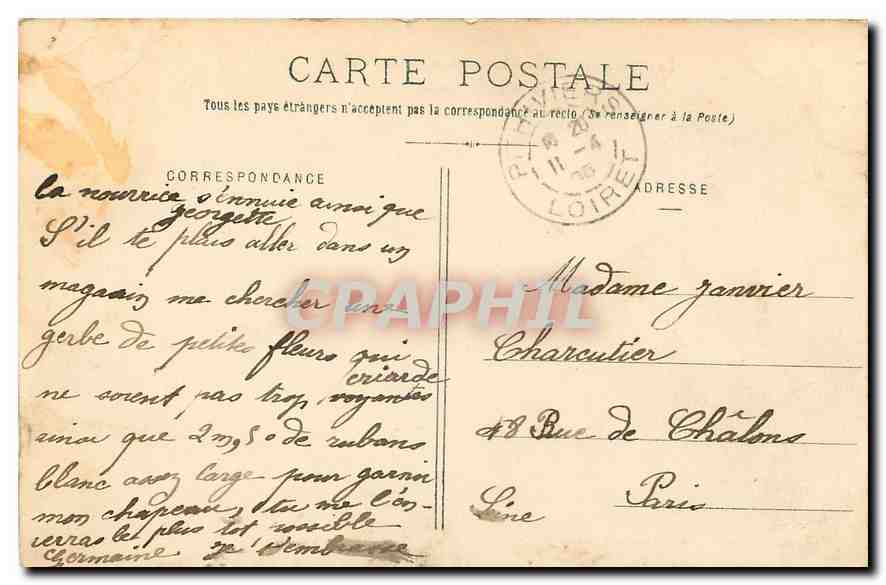 CARTE POSTALE
Tous les pays étrangers n'acceptent pas la correspondance au recto (Se renseigner à la Poste)
PITHIVIERS
20
11 - 4
LOIRET
CORRESPONDANCE
ADRESSE
la nourrice s'ennuie ainsi que
georgette
S'il te plais aller dans un
magasin me chercher une
gerbe de petites fleurs qui
criarde
ne soient pas trop voyantes
ainsi que 2 m, 50 de rubans
blanc assez large pour garnir
mon chapeau, tu me l'en-
verras le plus tot possible
Germaine je t'embrasse
Madame Janvier
Charcutier
48 Rue de Châlons
Paris
Seine
CPAPHIL